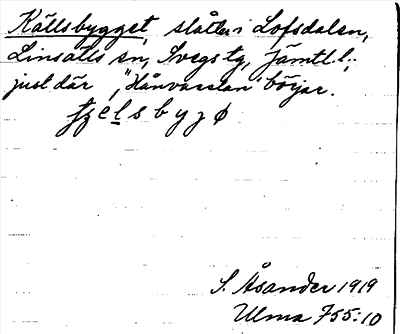 Källsbygget, slåtter i Lofsdalen,
Linsälls sn, Svegs tg, Jämtl. l.;
just där "Hånvasslan" börjar.
fzelsbygø
S. Åsander 1919
Ulma 755:10